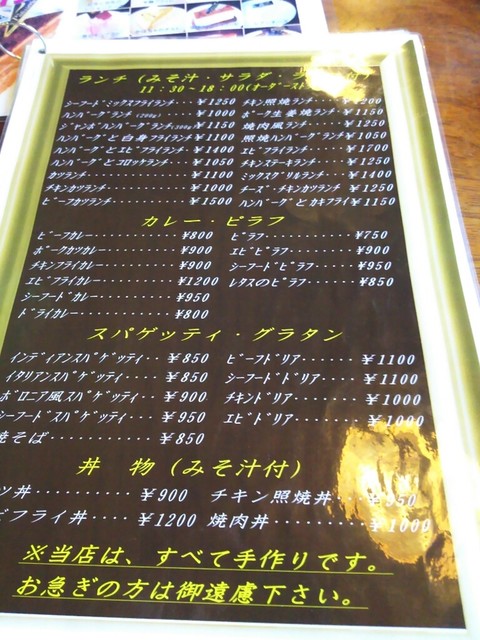 ランチ (みそ汁・サラダ・付)
11:30~18:00(オーダースト
シーフードミックスフライランチ ¥1250 チキン照焼ランチ・・ ¥1200
ハンバーグランチ (200g) ¥1000 ポーク生姜焼ランチ・¥1150
ジャンボハンバーグランチ(300g) ¥1150 焼肉風ランチ・・・・ ¥1250
ハンバーグランチと白身フライランチ ¥1100 照焼ハンバーグランチ ¥1050
ハンバーグとエビフライランチ・ ¥1400 エビフライランチ・・・・ ¥1700
ハンバーグとコロッケランチ・・ ¥1050 チキンステーキランチ・・・ ¥1250
カツランチ・・・・・・・・ ¥1100 ミックスグリルランチ・・・ ¥1400
チキンカツランチ・・・・・・ ¥1000 チーズ・チキンカツランチ ¥1250
ビーフカツランチ・・・・・・ ¥1500 ハンバーグとカキフライ ¥1150
カレー・ピラフ
ビーフカレー・・・・・・・・ ¥800 ピラフ・・・・・・・・ ¥750
ポークカツカレー・・・・・・ ¥900 エビピラフ・・・・・・ ¥900
チキンフライカレー・・・・・ ¥900 シーフードピラフ・・・ ¥950
エビフライカレー・・・・・・ ¥1200 レタスのピラフ・・・・ ¥850
シーフードカレー・・・・・・ ¥950
ドライカレー・・・・・・・・ ¥800
スパゲッティ・グラタン
インディアンスパゲッティ・・ ¥850 ビーフドリア・・・・・ ¥1100
イタリアンスパゲッティ・・・ ¥850 シーフードドリア・・・ ¥1100
ボロニア風スパゲッティ・・ ¥900 チキンドリア・・・・・ ¥1000
シーフードスパゲッティ・・・ ¥950 エビドリア・・・・・・ ¥1000
焼そば・・・・・・・・・・ ¥850
丼 物 (みそ汁付)
ツ丼・・・・・・・・・ ¥900 チキン照焼丼・・・ ¥950
ビフライ丼・・・・・ ¥1200 焼肉丼・・・・・・・ ¥1000
※当店は、すべて手作りです。
お急ぎの方は御遠慮下さい。